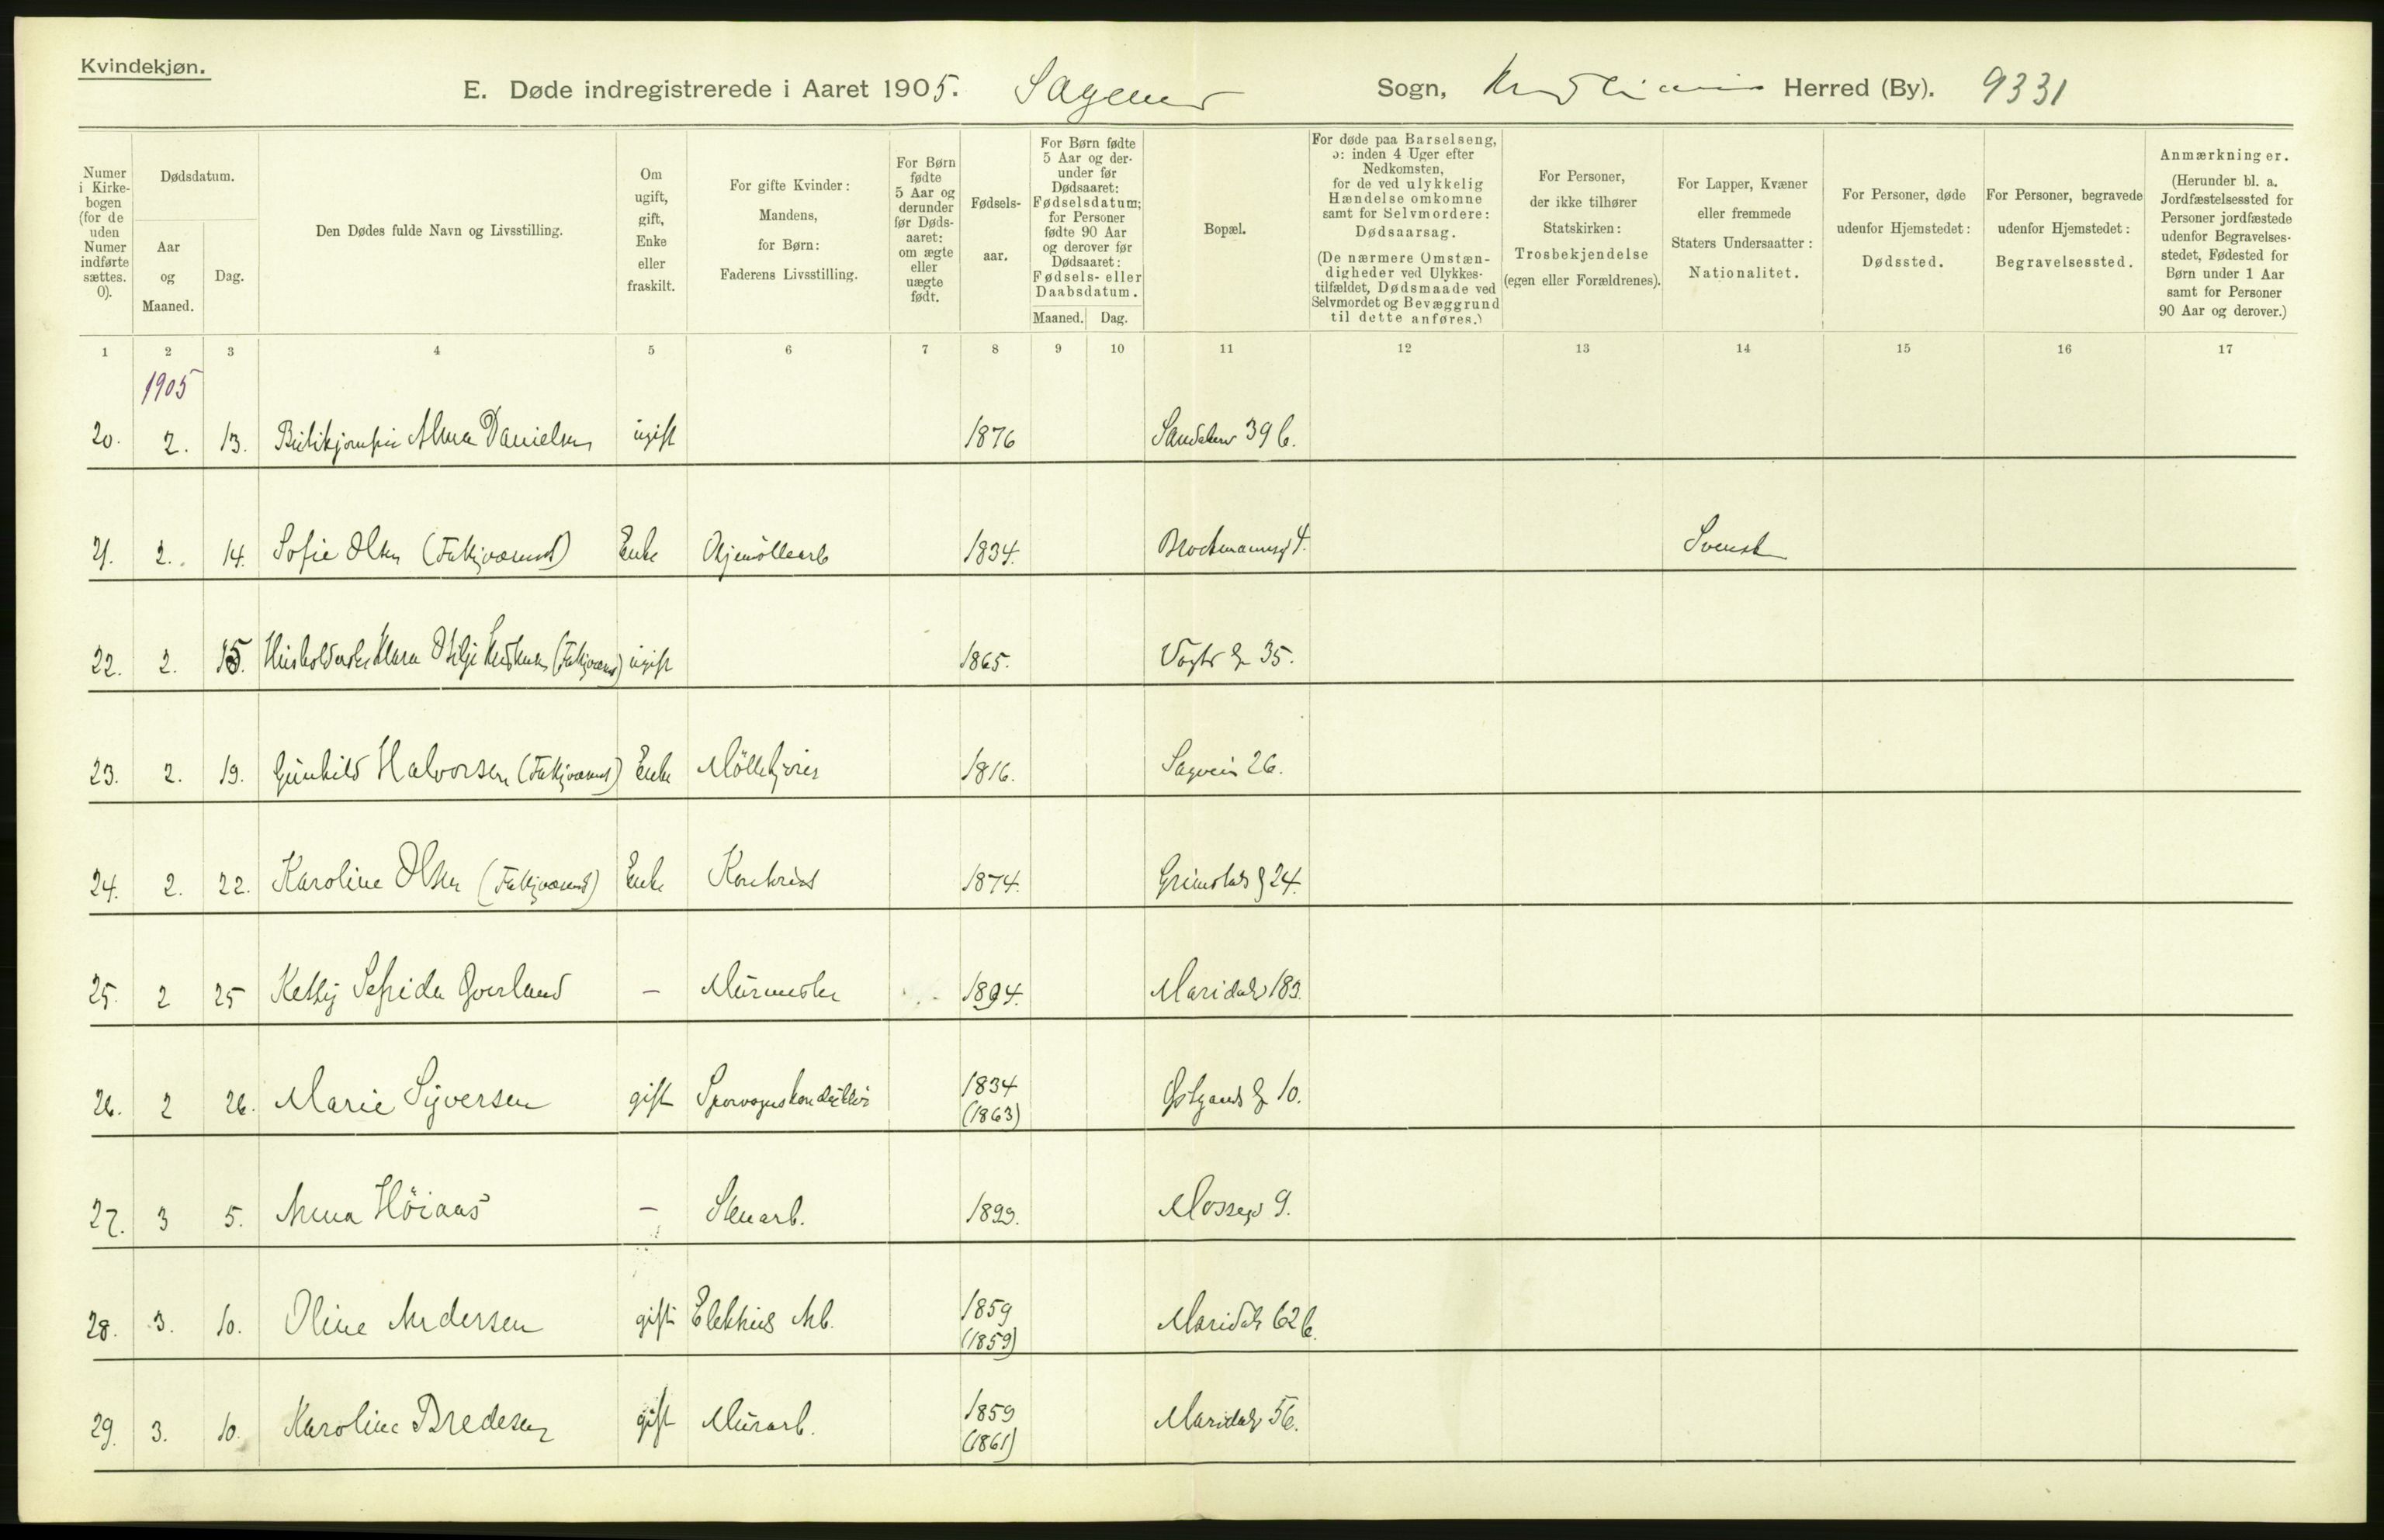 Kvindekjøn.
E. Døde indregistrerede i Aaret 1905. Sagenes Sogn, Kristiania Herred (By). 9331
Numer i Kirkebogen (for de uden Numer indførte sættes. 0).
Dødsdatum.
Aar og Maaned.
Dag.
Den Dødes fulde Navn og Livsstilling.
Om ugift, gift, Enke eller fraskilt.
For gifte Kvinder: Mandens, for Børn: Faderens Livsstilling.
For Børn fødte 5 Aar og derunder før Dødsaaret: om ægte eller uægte født.
Fødselsaar.
For Børn fødte 5 Aar og derunder før Dødsaaret: Fødselsdatum; for Personer fødte 90 Aar og derover før Dødsaaret: Fødsels- eller Daabsdatum.
Maaned. Dag.
Bopæl.
For døde paa Barselseng, ɔ: inden 4 Uger efter Nedkomsten, for de ved ulykkelig Hændelse omkomne samt for Selvmordere: Dødsaarsag.
(De nærmere Omstændigheder ved Ulykkestilfældet, Dødsmaade ved Selvmordet og Bevæggrund til dette anføres.)
For Personer, der ikke tilhører Statskirken: Trosbekjendelse (egen eller Forældrenes).
For Lapper, Kvæner eller fremmede Staters Undersaatter: Nationalitet.
For Personer, døde udenfor Hjemstedet: Dødssted.
For Personer, begravede udenfor Hjemstedet: Begravelsessted.
Anmærkninger.
(Herunder bl. a. Jordfæstelsessted for Personer jordfæstede udenfor Begravelsesstedet, Fødested for Børn under 1 Aar samt for Personer 90 Aar og derover.)
1 2 3 4 5 6 7 8 9 10 11 12 13 14 15 16 17
1905
20. 2. 13. Alma Danielsen ugift 1876 39 b.
21. 2. 14. Sofie Olsen Enke 1834. 4. Svensk
22. 2. 15. Klara ugift 1865. Vogts g 35.
23. 2. 19. Gunhild Halvorsen Enke Möllekjörer 1816. Sagvein 26.
24. 2. 22. Karoline Olsen Enke 1874. Grimstads g 24.
25. 2 25 Overland – Murmester 1894. Maridals 183.
26. 2 26. Marie Syversen gift Sporvognskonduktör 1834 (1863) Østgaards g 10.
27. 3 5. Anna Höiaas – Stenarb. 1899. Mosseg 9.
28. 3. 10. Oline Andersen gift Arb. 1859 (1859) Maridals 62 b.
29. 3. 10. Karoline Bredesen gift Murarb. 1859 (1861) Maridals 56.